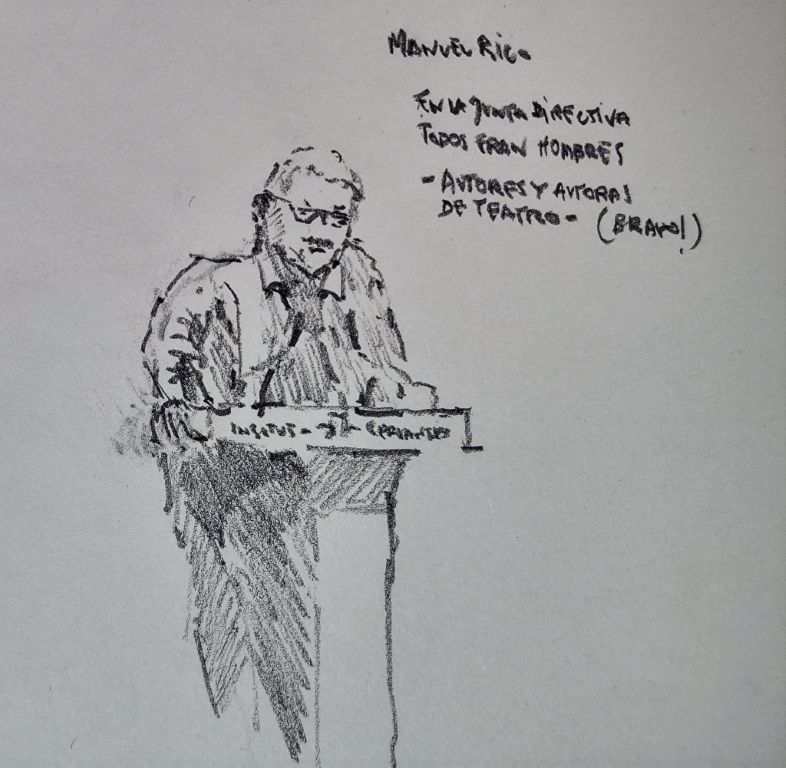 MANUEL RICO
EN LA JUNTA DIRECTIVA
TODOS ERAN HOMBRES
- AUTORES Y AUTORAS
DE TEATRO - (BRAVO!)
INSTITUT - CERVANTES